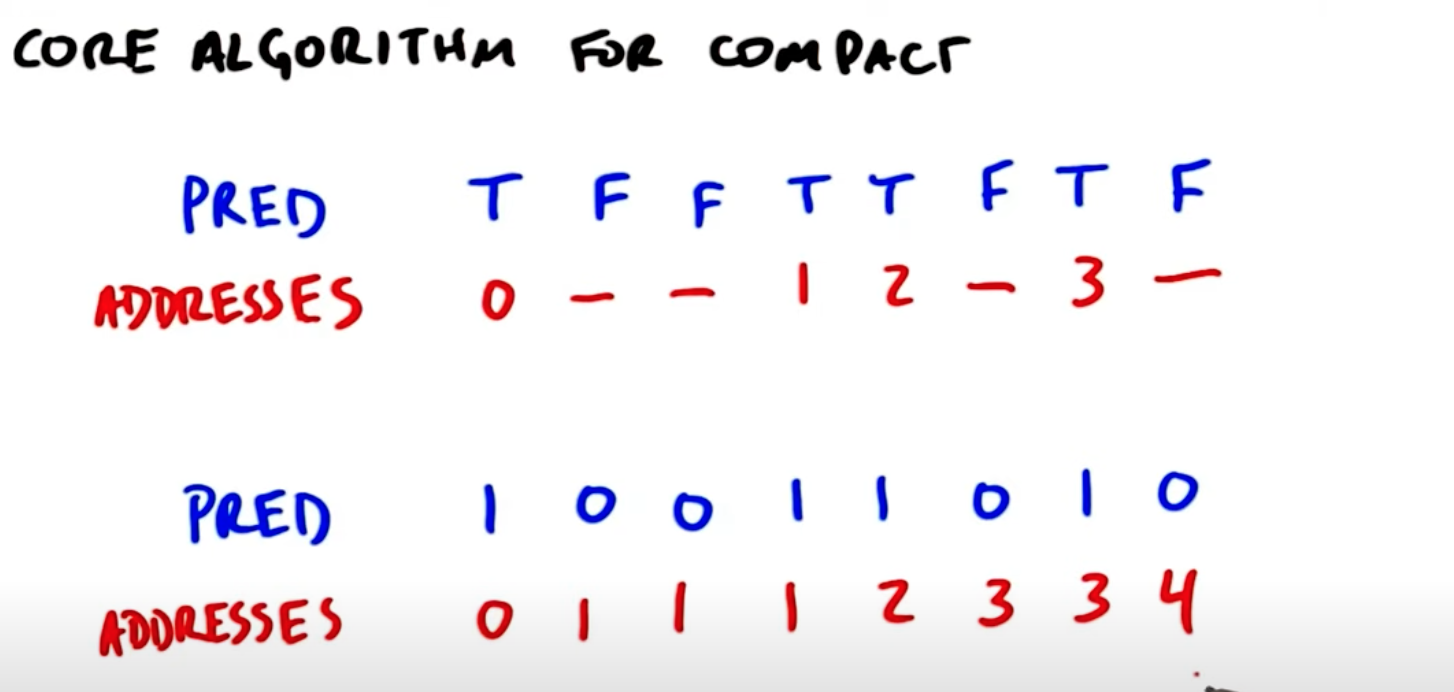 CORE ALGORITHM FOR COMPACT
PRED T F F T T F T F
ADDRESSES 0 — — 1 2 — 3 —
PRED 1 0 0 1 1 0 1 0
ADDRESSES 0 1 1 1 2 3 3 4